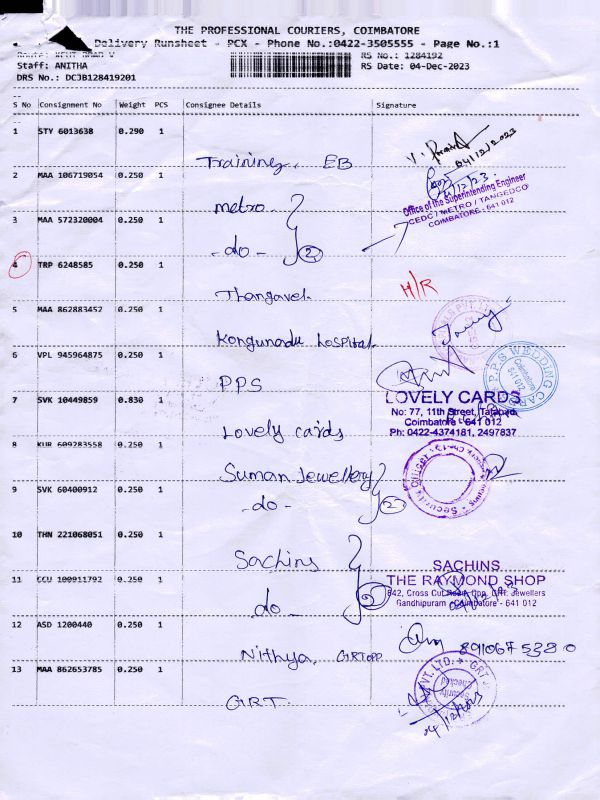 THE PROFESSIONAL COURIERS, COIMBATORE
Delivery Runsheet - PCX - Phone No.:0422-3505555 - Page No.:1
RS No.: 1284192
Staff: ANITHA RS Date: 04-Dec-2023
DRS No.: DCJB128419201
S No Consignment No Weight PCS Consignee Details Signature
1 STY 6013638 0.290 1 Training. EB
04/12/2023
2 MAA 106719054 0.250 1 metro
Office of the Superintending Engineer
CEDC / METRO / TANGEDCO
COIMBATORE - 641 012
3 MAA 572320004 0.250 1 - do - 2
4 TRP 6248585 0.250 1 Thangavel H/R
5 MAA 862883452 0.250 1 Kongunadu hospital
6 VPL 945964875 0.250 1 PPS
P.P.S WEDDING CARDS
Coimbatore
641 012
7 SVK 10449859 0.830 1 Lovely cards
LOVELY CARDS
No: 77, 11th Street, Tatabad
Coimbatore - 641 012
Ph: 0422-4374181, 2497837
8 KUR 609283558 0.250 1 Suman Jewellery
Security Officer
9 SVK 60400912 0.250 1 - do - 2
10 THN 221068051 0.250 1 Sachins
SACHINS
THE RAYMOND SHOP
842, Cross Cut Road, Opp. GRT Jewellers
Gandhipuram, Coimbatore - 641 012
11 CCU 100911792 0.250 1 do - 2
12 ASD 1200440 0.250 1 Nithya. GRT opp
13 MAA 862653785 0.250 1 GRT.
Security
Checked
04/12/2023